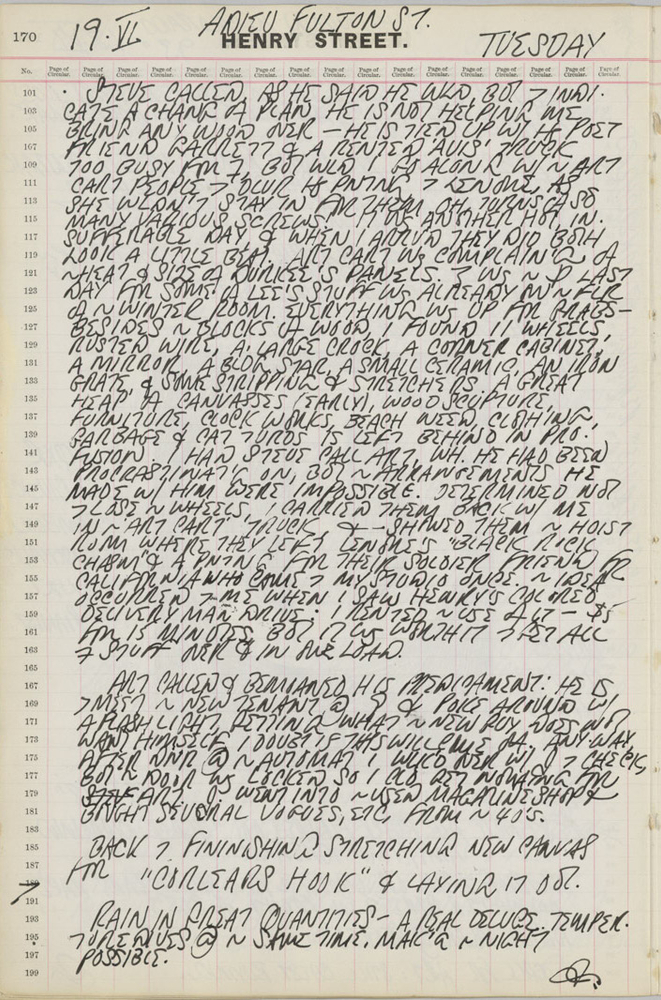 170 19·VI ADIEU FULTON ST. TUESDAY
HENRY STREET.
No. Page of Circular. Page of Circular. Page of Circular. Page of Circular. Page of Circular. Page of Circular. Page of Circular. Page of Circular. Page of Circular. Page of Circular. Page of Circular. Page of Circular. Page of Circular. Page of Circular. Page of Circular. Page of Circular. Page of Circular.
101 · STEVE CALLED, AS HE SAID HE WLD, BUT > INDI-
103 CATE A CHANGE OF PLAN. HE IS NOT HELPING ME
105 BRING ANY WOOD OVER — HE IS TIED UP W/ HS POET
107 FRIEND GARRETT & A RENTED 'AVIS' TRUCK
109 TOO BUSY FOR, BUT WLD I GO ALONG W/ ~ ART
111 CART PEOPLE > HS PNTNG > LENORE, AS
113 SHE WLDN'T STAY IN FOR THEM. OH, TURNS ALSO
115 MANY VARIOUS SCREWS! ANOTHER HOT, IN-
117 SUFFERABLE DAY, & WHEN I ARRIVD THEY DID BOTH
119 LOOK A LITTLE BEAT. ART CART WS COMPLAIN'G OF
121 ~ HEAT & SIZE OF DURKEE'S PANELS. WS ~ LAST
123 DAY FOR SOME OF LEE'S STUFF WS ALREADY ON ~ FLR
125 OF ~ WINTER ROOM. EVERYTHING WS UP FOR GRABS—
127 BESIDES ~ BLOCKS OF WOOD, I FOUND 11 WHEELS,
129 RUSTED WIRE, A LARGE CROCK, A CORNER CABINET,
131 A MIRROR, A BLDG STAR, A SMALL CERAMIC, AN IRON
133 GRATE, & SOME STRIPPING & STRETCHERS. A GREAT
135 HEAP OF CANVASSES (EARLY), WOOD SCULPTURE,
137 FURNITURE, CLOCK WORKS, BEACH WEED, CLOTHING,
139 GARBAGE & CAT TURDS IS LEFT BEHIND IN PRO-
141 FUSION. I HAD STEVE CALL ART, WH. HE HAD BEEN
143 PROCRASTINAT'G ON, BUT ~ ARRANGEMENTS HE
145 MADE W/ HIM WERE IMPOSSIBLE. DETERMINED NOT
147 > LOSE ~ WHEELS, I CARRIED THEM BACK W/ ME
149 IN ~ 'ART CART' TRUCK & SHOWED THEM ~ HOIST
151 ROOM WHERE THEY LEFT LENORE'S "BLACK ROCK
153 CHASM" & A PNTNG FOR THEIR SOLDIER FRIEND FR
155 CALIFORNIA WHO COME > MY STUDIO ONCE. ~ IDEA
157 OCCURRED > ME WHEN I SAW HENRY'S COLORED
159 DELIVERY MAN DRIVE: I RENTED ~ USE OF IT — $5
161 FOR 15 MINUTES, BUT IT WS WORTH IT > GET ALL
163 STUFF OVER & IN ONE LOAD.
165
167 ART CALLED & BEMOANED HIS PREDICAMENT: HE IS
169 > MEET ~ NEW TENANT @ 9 & POKE AROUND W/
171 A FLASH LIGHT, GETTING WHAT ~ NEW GUY DOES NOT
173 WANT HIMSELF. I DOUBT IF THIS WILL COME OFF. ANY WAY,
175 AFTER DNR @ ~ AUTOMAT I WLKD OVER W/ J > CHECK,
177 BUT ~ DOOR WS LOCKED SO I DID GET NOTHING FOR
179 ART. J. WENT INTO ~ USED MAGAZINE SHOP &
181 BOUGHT SEVERAL VOGUES, ETC, FROM ~ 40'S.
183
185 BACK > FININSHING STRETCHING NEW CANVAS
187 FOR "CORLEARS HOOK" & LAYING IT OUT.
189
191
193 RAIN IN GREAT QUANTITIES— A REAL DELUGE. TEMPER-
195 TURE DIVES @ ~ SAME TIME, MAK'G ~ NIGHT
197 POSSIBLE.
199